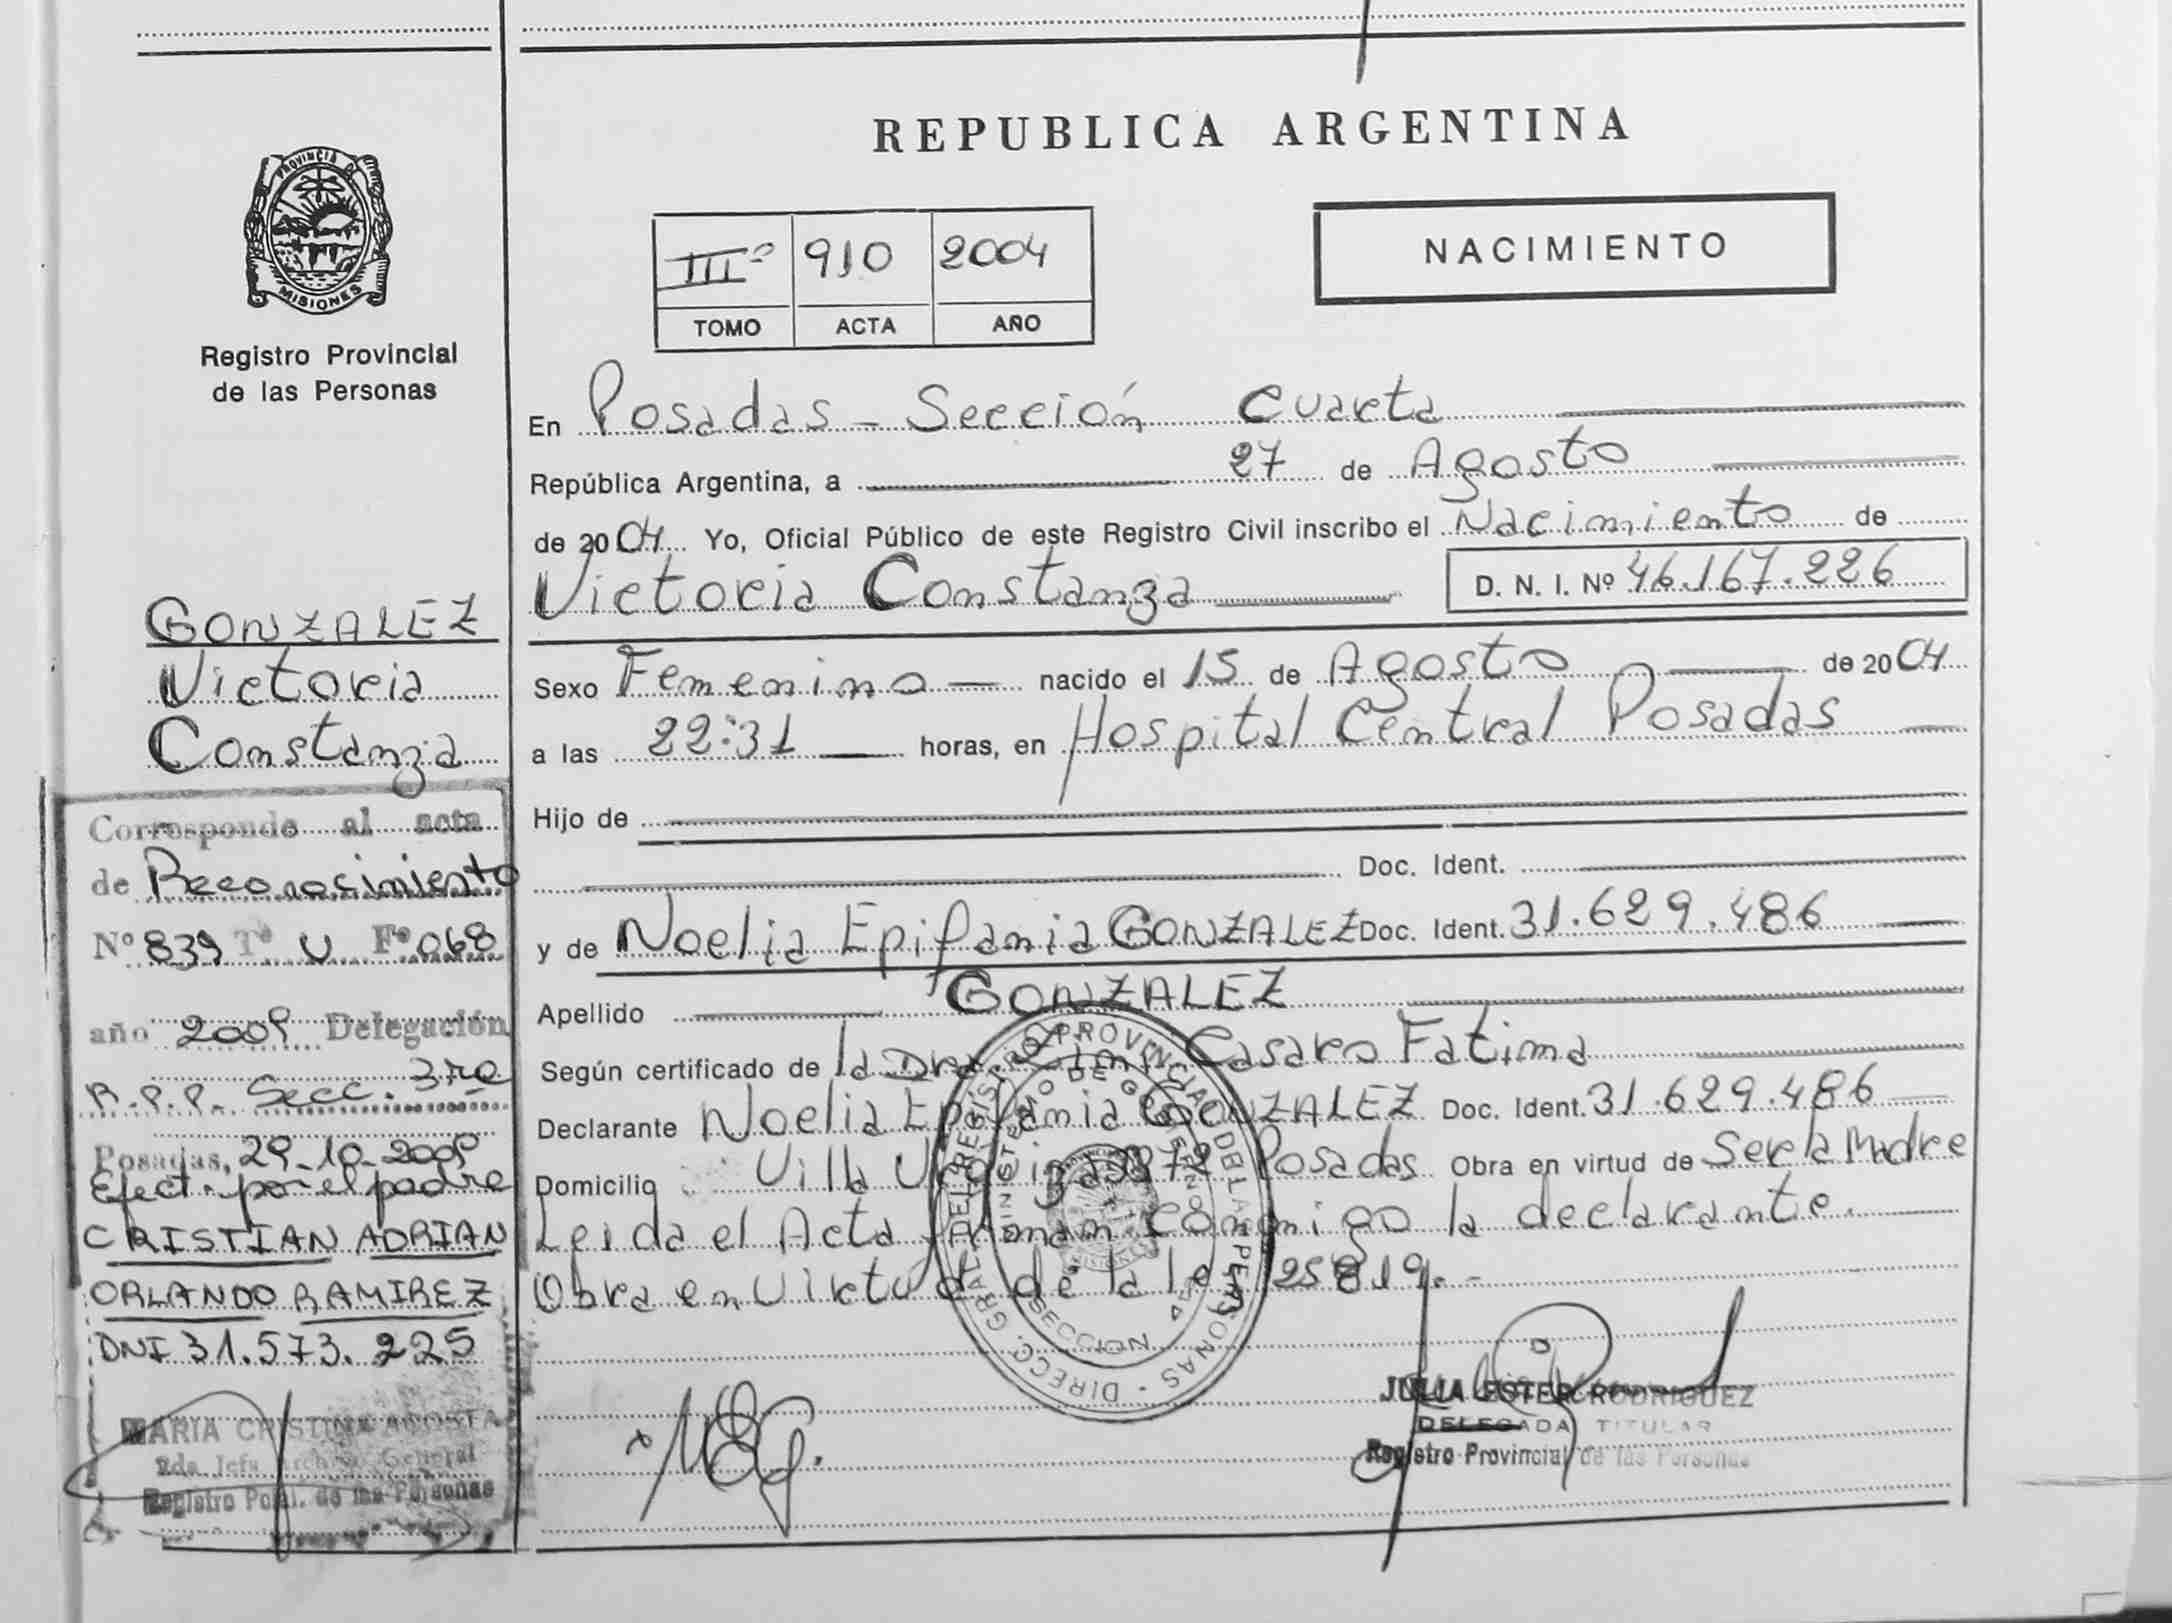 REPUBLICA ARGENTINA
PROVINCIA DE MISIONES
Registro Provincial
de las Personas
IIIº 910 2004
TOMO ACTA AÑO
NACIMIENTO
En Posadas - Sección Cuarta
República Argentina, a 27 de Agosto
de 2004 Yo, Oficial Público de este Registro Civil inscribo el Nacimiento de
Victoria Constanza D. N. I. Nº 46.167.226
Sexo Femenino nacido el 15 de Agosto de 2004
a las 22:31 horas, en Hospital Central Posadas
Hijo de
Doc. Ident.
y de Noelia Epifania GONZALEZ Doc. Ident. 31.629.486
Apellido GONZALEZ
Según certificado de la Dra. Casaro Fatima
Declarante Noelia Epifania GONZALEZ Doc. Ident. 31.629.486
Domicilio Villa Posadas Obra en virtud de Ser la Madre
Leida el Acta firman conmigo la declarante.
Obra en Virtud de la ley 25819.-
GONZALEZ
Victoria
Constanza
Corresponde al acta
de Reconocimiento
Nº 839 Tº V Fº 068
año 2009 Delegación
R.P.P. Secc. 3ra
Posadas, 29-10-2009
Efect. por el padre
CRISTIAN ADRIAN
ORLANDO RAMIREZ
DNI 31.573.225
MARIA CRISTINA ACOSTA
2da. Jefa Archivo General
Registro Pcial. de las Personas
DIRECC. GRAL. DEL REGISTRO PROVINCIAL DE LAS PERSONAS
MINISTERIO DE GOBIERNO
SECCION 4a
NEG.
JULIA ESTER RODRIGUEZ
DELEGADA TITULAR
Registro Provincial de las Personas